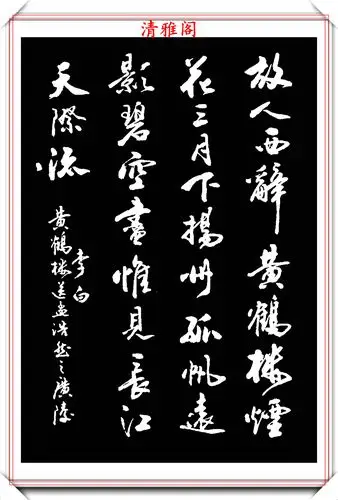 清雅阁
故人西辭黄鶴樓煙
花三月下揚州孤帆遠
影碧空盡惟見長江
天際流
李白
黄鶴樓送孟浩然之廣陵